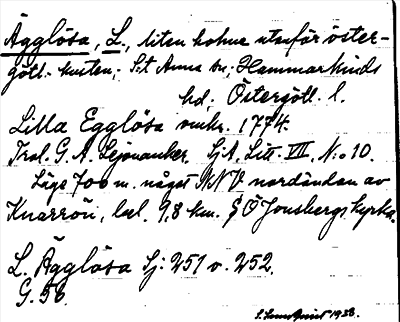 Ägglösa, L., liten holme utanför öster-
götl. kusten; S:t Anna sn; Hammarkinds
hd; Östergötl. l.
Lilla Egglösa omkr. 1774.
Tral. G. A. Lejonanker. SjA, Litt. VII, N:o 10.
Läge 700 m. något NNV nordändan av
Knarrön, bel. 9,8 km. SO Jonsbergs kyrka.
L. Ägglösa Sj: 251 o. 252.
G. 56.
1938.